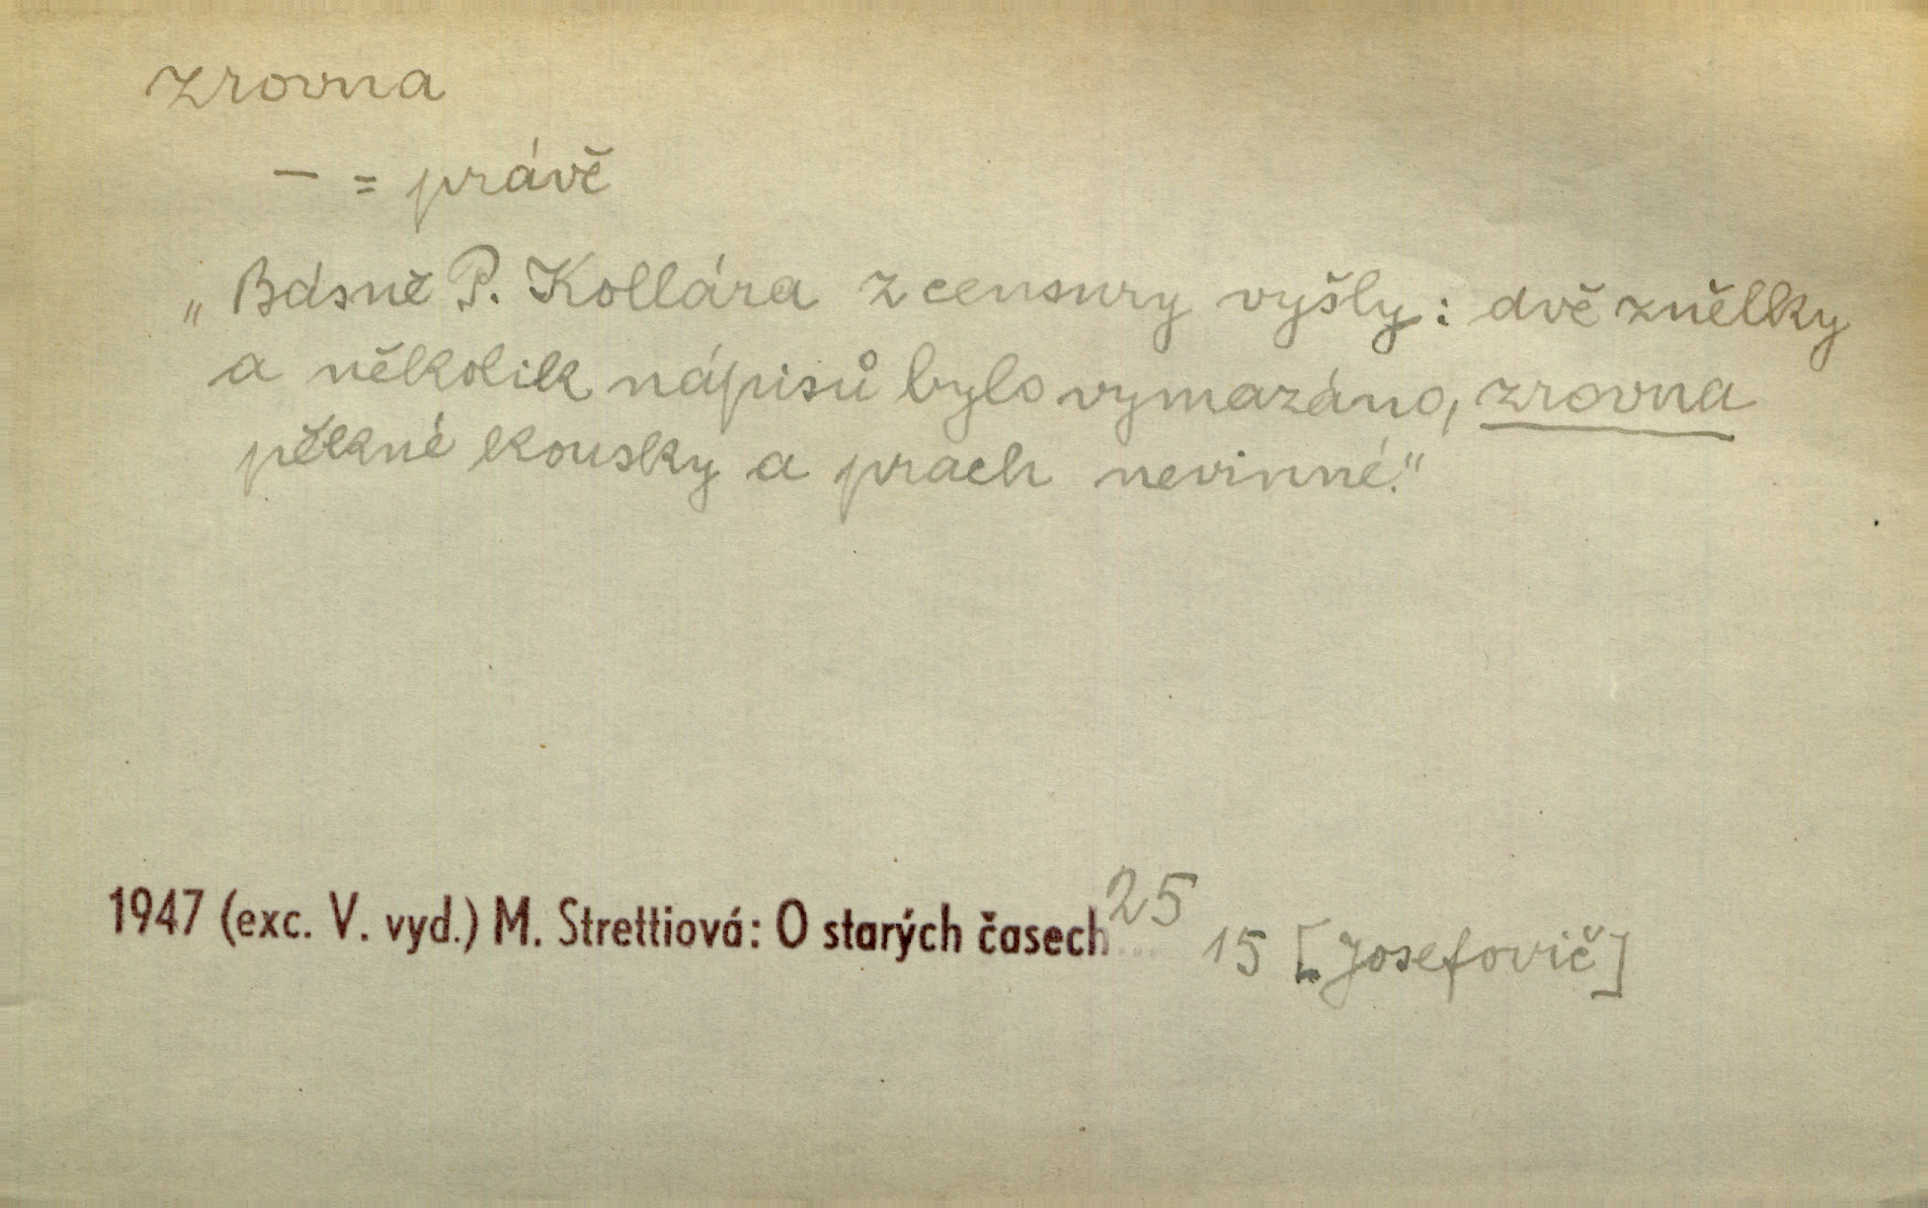 zrovna
— = právě
„Básně P. Kollára z censury vyšly: dvě znělky
a několik nápisů bylo vymazáno, zrovna
pěkné kousky a prach nevinné."
1947 (exc. V. vyd.) M. Strettiová: O starých časech 25 15 [Josefovič]